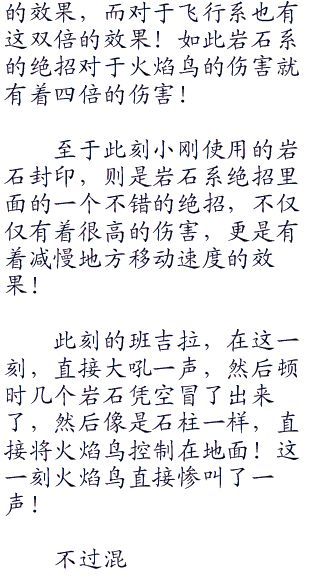 的效果，而对于飞行系也有
这双倍的效果！如此岩石系
的绝招对于火焰鸟的伤害就
有着四倍的伤害！
至于此刻小刚使用的岩
石封印，则是岩石系绝招里
面的一个不错的绝招，不仅
仅有着很高的伤害，更是有
着减慢地方移动速度的效
果！
此刻的班吉拉，在这一
刻，直接大吼一声，然后顿
时几个岩石凭空冒了出来
了，然后像是石柱一样，直
接将火焰鸟控制在地面！这
一刻火焰鸟直接惨叫了一
声！
不过混